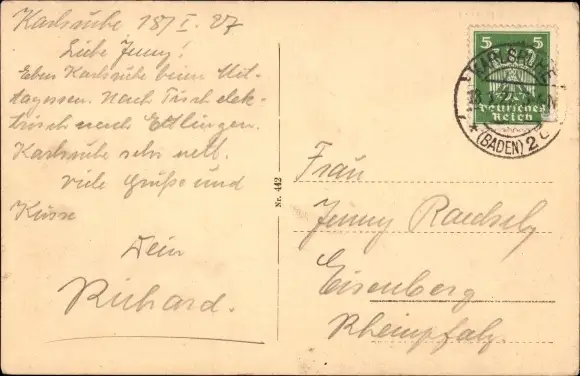 Karlsruhe 18/I. 27
Liebe Jenny!
Eben Karlsruhe beim Mit-
tagessen. Nach Tisch elek-
trisch nach Ettlingen.
Karlsruhe sehr nett.
Viele Grüße und
Küsse
Dein
Richard.
Nr. 442
5 5
Deutsches
Reich
KARLSRUHE
*(BADEN) 2
Frau
Jenny
Eisenberg
Rheinpfalz.